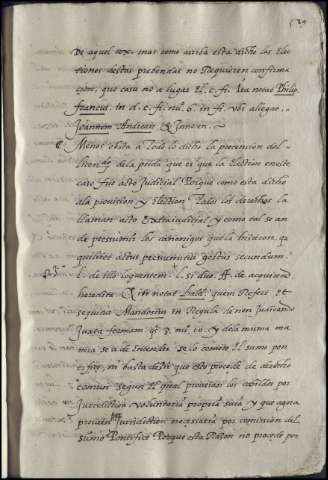 De aquel
mas como arriba esta dicho las Elec
tiones destas prebendas no Requieren confirma
cion, que caso no a lugar el c. fi. ita notat Philip.
francus. in d. c. fi. nu. 6. in fi. vbi allegat.
Joannem Andream &
Menos obsta a todo lo dicho la pretencion del
licen.do de la peida que es que la Election en este
caso fue acto Judicial Porque como esta dicho
ala provision y Election tales los derechos la
llaman acto Extrajudicial, y como tal se an
de presumir los canonigos que la hizieron, qa
quilibet actus
secundum
loquentem. l. si duo. ff. de acquirend.
heredita. &
notat Bald. quem Refert, et
sequitur Mandosius in Regula de non Judicando
Juxta formam q. 3. nu. 10. y de la misma ma
nera se a de Entender se lo comete El sumo pon
tifice, no basta decir que esto procede de derecho
comun segun el qual proveian los cabildos por
Jurisdiction voluntaria propria suia y que agora
proveen
Jurisdiction necessaria por comission del
sumo Pontifice Porque esta Razon no procede por